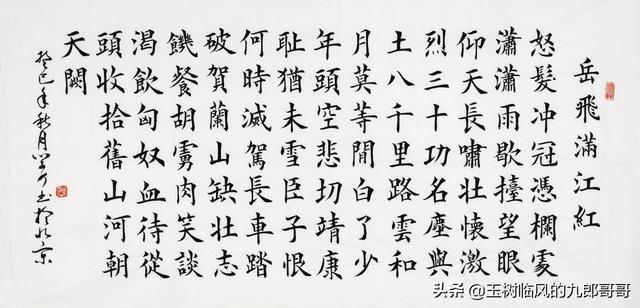 岳飛滿江紅
怒髮冲冠憑欄處
瀟瀟雨歇擡望眼
仰天長嘯壯懷激
烈三十功名塵與
土八千里路雲和
月莫等間白了少
年頭空悲切靖康
耻猶未雪臣子恨
何時滅駕長車踏
破賀蘭山缺壯志
饑餐胡虜肉笑談
渴飲匈奴血待從
頭收拾舊山河朝
天闕
癸巳年秋月書於北京
头条 @玉树临风的九郎哥哥